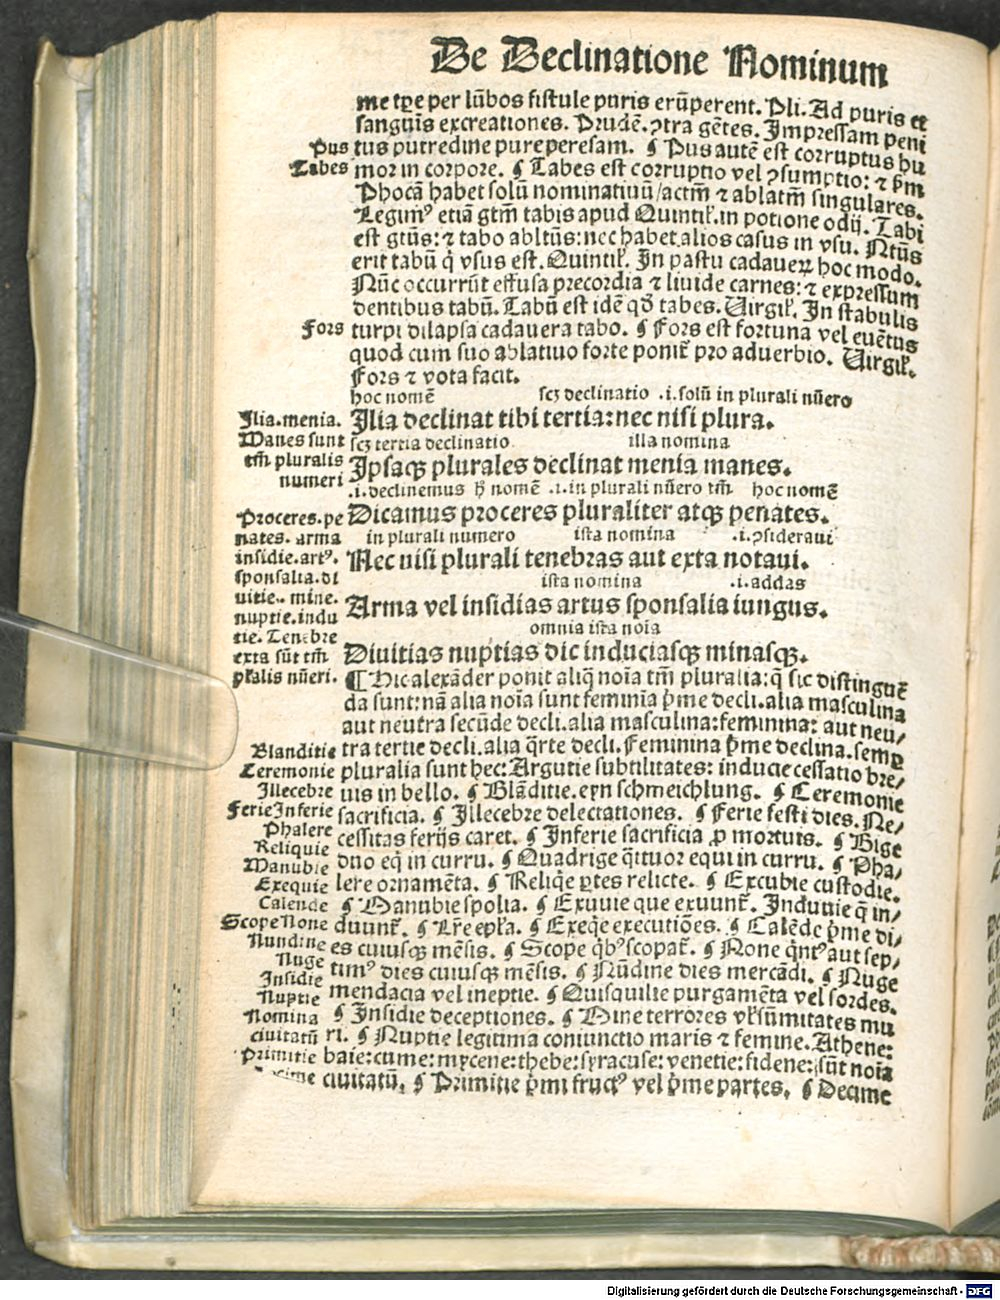 De Declinatione Nominum
me tꝑe per lūbos fistule puris erūperent. Pli. Ad puris et
sanguis excreationes. Prudē. ꝯtra gētes. Impressam peni
Pus tus putredine pure peresam. ¶ Pus autē est corruptus hu
Tabes mor in corpore. ¶ Tabes est corruptio vel ꝯsumptio: ⁊ ẜm
Phocā habet solū nominatiuū/actm̄ ⁊ ablatm̄ singulares.
Legimꝰ etiā gtm̄ tabis apud Quintil̕. in potione odij. Tabi
est gtūs: ⁊ tabo abltūs: nec habet alios casus in vsu. Ntūs
erit tabū q̇ vsus est. Quintil̕. In pastu cadauerꝝ hoc modo.
Nūc occurrūt effusa precordia ⁊ liuide carnes: ⁊ expressum
dentibus tabū. Tabū est idē qđ tabes. Virgil̕. In stabulis
Fors turpi dilapsa cadauera tabo. ¶ Fors est fortuna vel euētus
quod cum suo ablatiuo forte ponit̄ pro aduerbio. Virgil̕.
Fors ⁊ vota facit.
hoc nomē scꝫ declinatio .i. solū in plurali nūero
Ilia. menia. Ilia declinat tibi tertia: nec nisi plura.
Manes sunt scꝫ tertia declinatio illa nomina
tm̄ pluralis Ipsaqꝫ plurales declinat menia manes.
numeri .i. declinemus h̄ nomē .i. in plurali nūero tm̄ hoc nomē
Proceres. pe Dicamus proceres pluraliter atqꝫ penates.
nates. arma in plurali numero ista nomina .i. ꝯsideraui
insidie. artꝰ. Nec nisi plurali tenebras aut exta notaui.
sponsalia. di ista nomina .i. addas
uitie. mine. Arma vel insidias artus sponsalia iungus.
nuptie. indu omnia ista noīa
tie. Tenebre
exta sūt tm̄ Diuitias nuptias dic induciasqꝫ minasqꝫ.
pl̕alis nūeri. ¶ Hic alexāder ponit aliq̄ noīa tm̄ pluralia: q̄ sic distinguē
da sunt: nā alia noīa sunt feminia p̄me decli. alia masculina
aut neutra secūde decli. alia masculina: feminina: aut neu/
Blanditie tra tertie decli. alia q̄rte decli. Feminina p̄me declina. semꝑ
Ceremonie pluralia sunt hec: Argutie subtilitates: inducie cessatio bre/
Illecebre uis in bello. ¶ Blāditie. eyn schmeichlung. ¶ Ceremonie
Ferie Inferie sacrificia. ¶ Illecebre delectationes. ¶ Ferie festi dies. Ne/
Phalere cessitas ferijs caret. ¶ Inferie sacrificia ꝓ mortuis. ¶ Bige
Reliquie duo eq̇ in curru. ¶ Quadrige q̄ttuor equi in curru. ¶ Pha/
Manubie lere ornamēta. ¶ Reliq̄e ꝑtes relicte. ¶ Excubie custodie.
Exequie
Calende ¶ Manubie spolia. ¶ Exuuie que exuunt̄. Induuie q̄ in/
Scope None duunt̄. ¶ Lr̄e epl̕a. ¶ Exeq̄e executiōes. ¶ Calēde p̄me di/
Nundine es cuiusqꝫ mēsis. ¶ Scope q̇bꝰ scopat̄. ¶ None q̇ntꝰ aut sep/
Nuge timꝰ dies cuiusqꝫ mēsis. ¶ Nūdine dies mercādi. ¶ Nuge
Insidie mendacia vel ineptie. ¶ Quisquilie purgamēta vel sordes.
Nuptie
Nomina ¶ Insidie deceptiones. ¶ Mine terrores vl̕ sūmitates mu
ciuitatū ri. ¶ Nuptie legitima coniunctio maris ⁊ femine. Athene:
Primitie baie: cume: mycene: thebe: syracuse: venetie: fidene: sūt noīa
ciuitatū. ¶ Primitie p̄mi fructꝰ vel p̄me partes. ¶ Decime
Digitalisierung gefördert durch die Deutsche Forschungsgemeinschaft - DFG